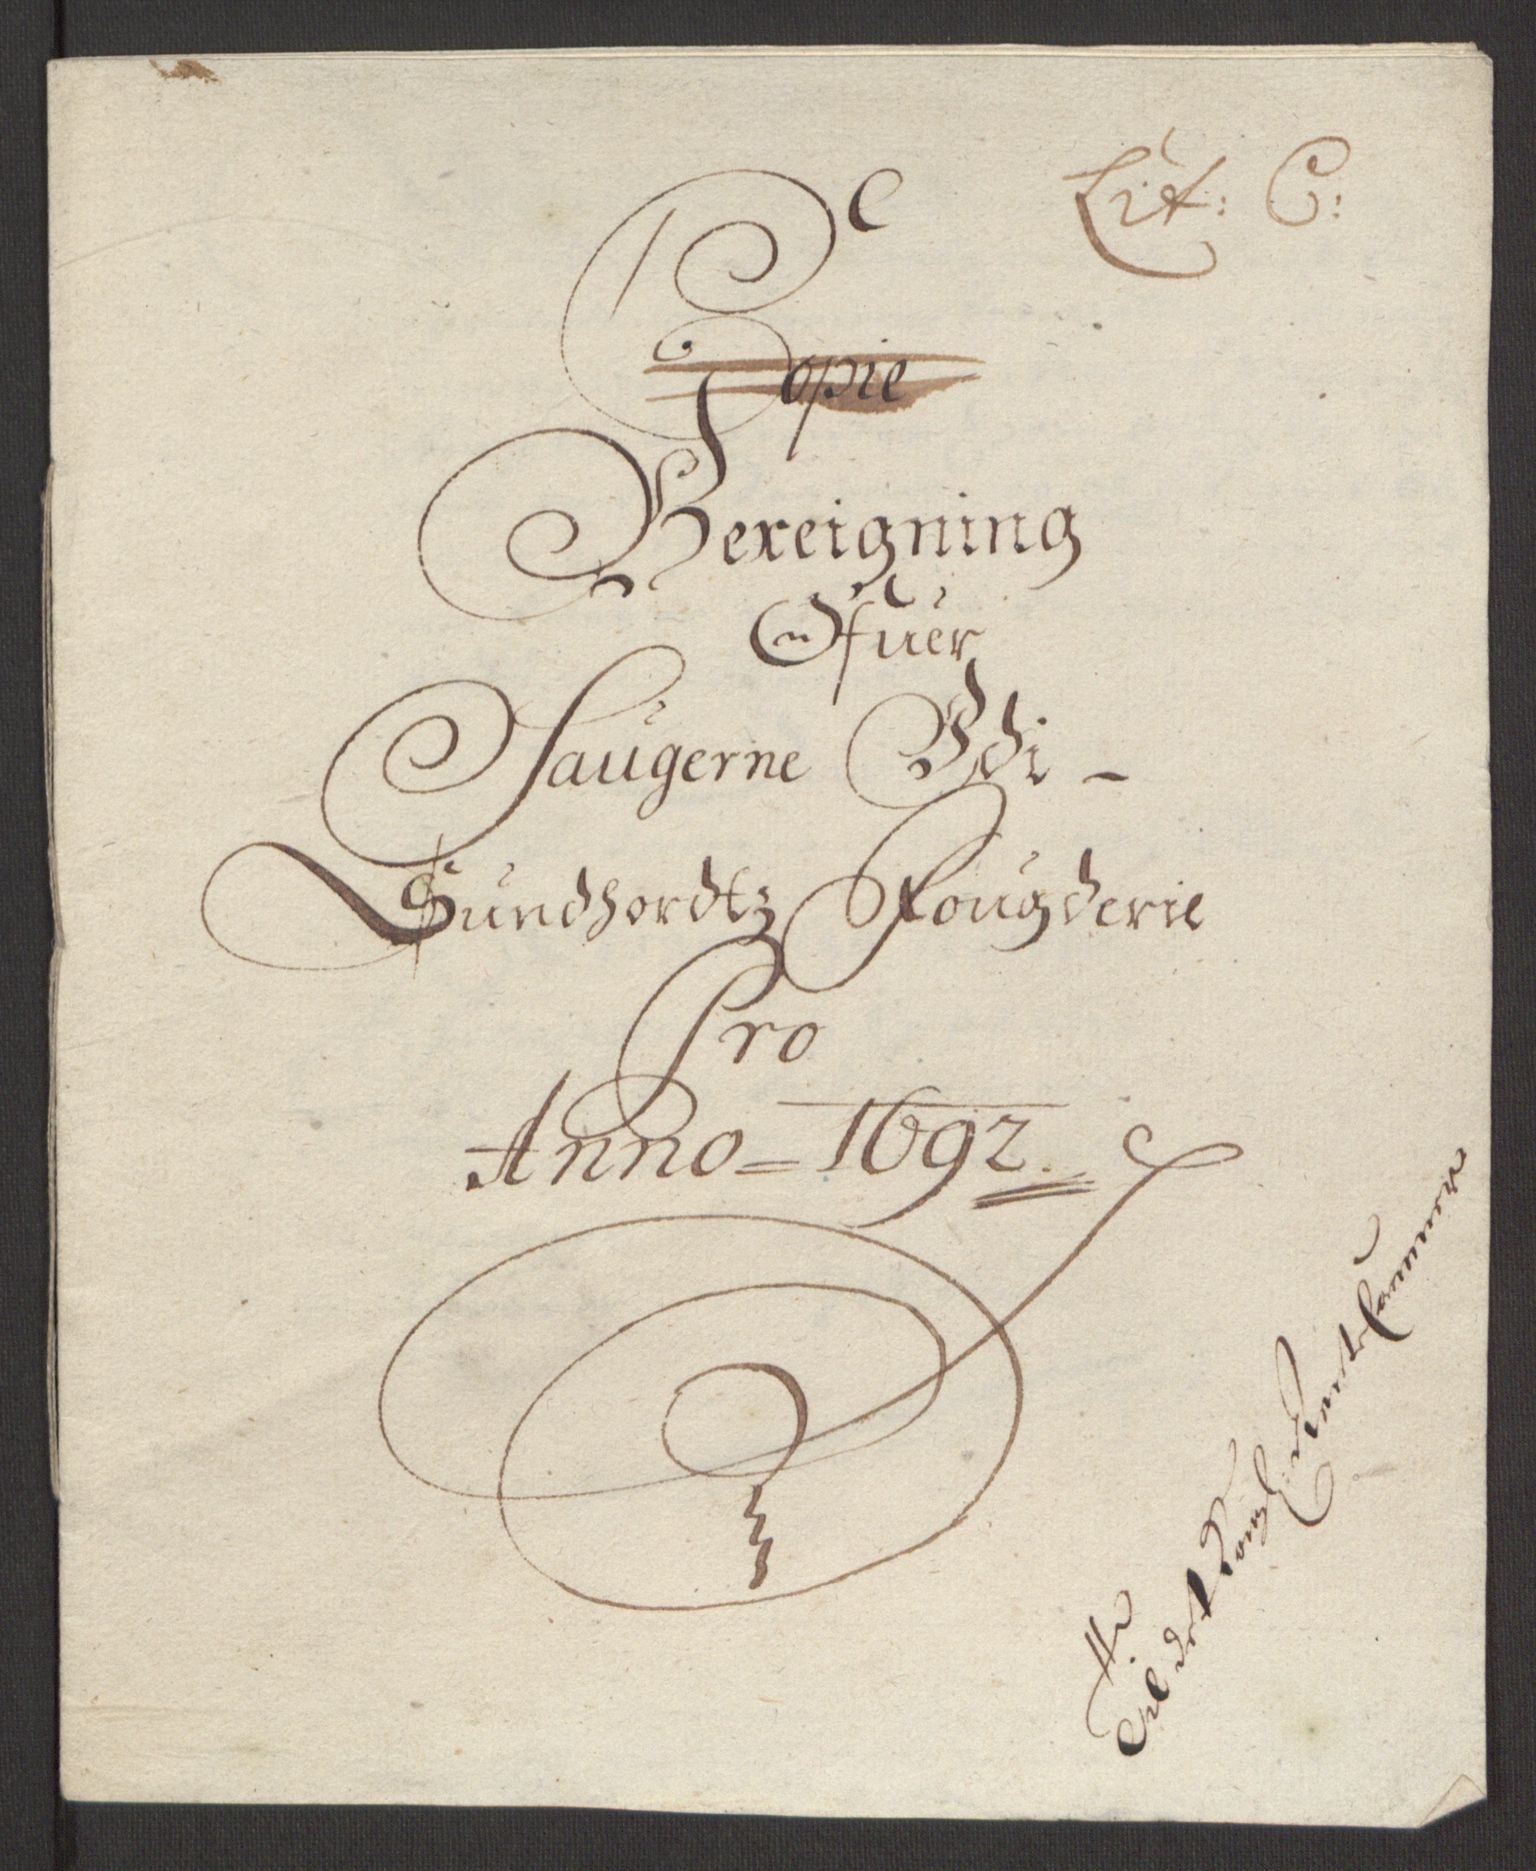 Lit: C:
Copie
Bereigning
Ofuer
Saugerne Udi -
Sundhordtz Fougderie
Pro
Anno = 1692.
til det Kongl: Rente Cammer